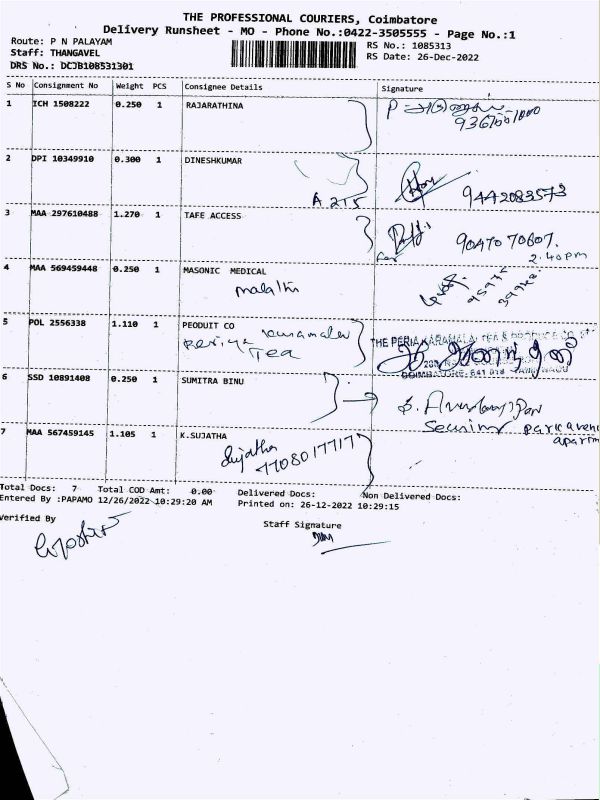 THE PROFESSIONAL COURIERS, Coimbatore
Delivery Runsheet - MO - Phone No.:0422-3505555 - Page No.:1
Route: P N PALAYAM
Staff: THANGAVEL
DRS No.: DCJB108531301
RS No.: 1085313
RS Date: 26-Dec-2022
S No Consignment No Weight PCS Consignee Details Signature
1 ICH 1508222 0.250 1 RAJARATHINA
2 DPI 10349910 0.300 1 DINESHKUMAR
A 215 9442083573
3 MAA 297610488 1.270 1 TAFE ACCESS
9047070607.
2.40pm
4 MAA 569459448 0.250 1 MASONIC MEDICAL
malathi
5 POL 2556338 1.110 1 PEODUIT CO
Periya karamalai
Tea
6 SSD 10891408 0.250 1 SUMITRA BINU
Security park avenu
apartm
7 MAA 567459145 1.105 1 K.SUJATHA
Sujatha
7708017717
Total Docs: 7 Total COD Amt: 0.00 Delivered Docs: Non Delivered Docs:
Entered By :PAPAMO 12/26/2022 10:29:20 AM Printed on: 26-12-2022 10:29:15
Verified By
Staff Signature